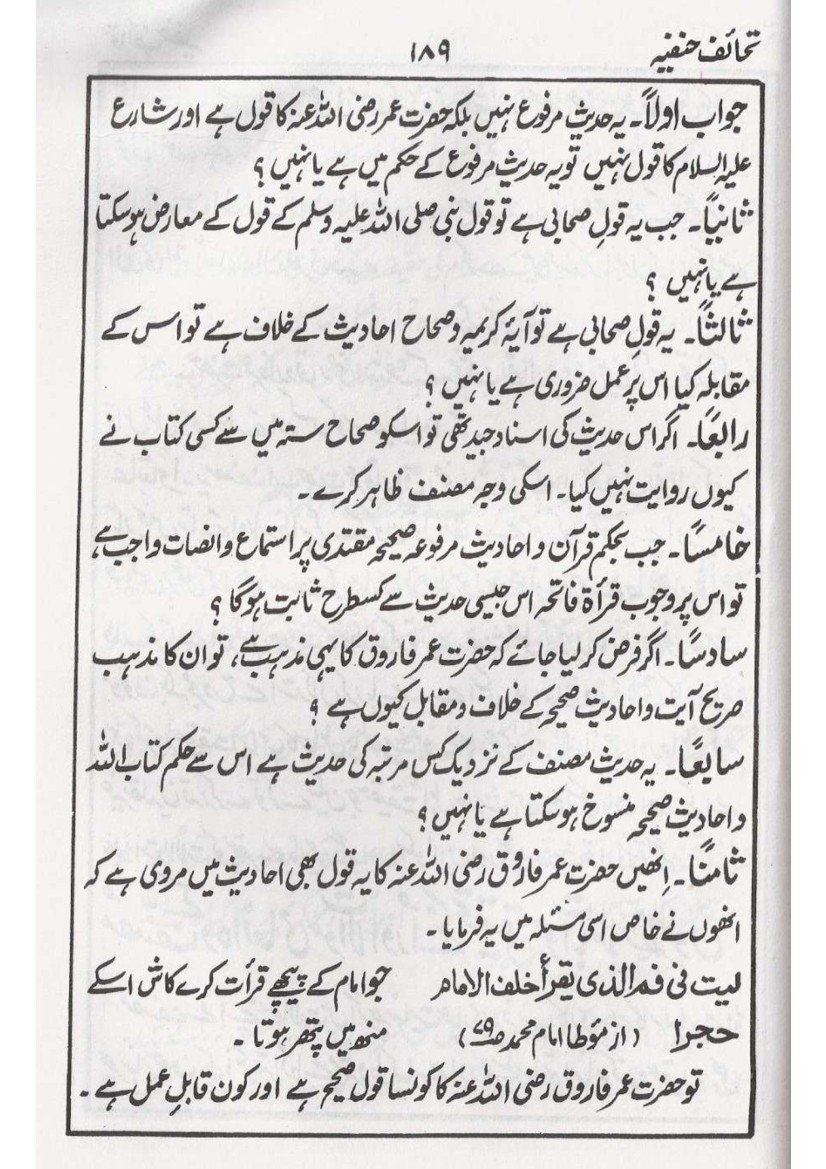 تحائف حنفیہ
۱۸۹
جواب اولاً۔ یہ حدیث مرفوع نہیں بلکہ حضرت عمر رضی اللہ عنہ کا قول ہے اور شارع
علیہ السلام کا قول نہیں تو یہ حدیث مرفوع کے حکم میں ہے یا نہیں؟
ثانیاً۔ جب یہ قولِ صحابی ہے تو قول نبی صلی اللہ علیہ وسلم کے قول کے معارض ہوسکتا
ہے یا نہیں؟
ثالثاً۔ یہ قولِ صحابی ہے تو آیۂ کریمہ وصحاح احادیث کے خلاف ہے تو اس کے
مقابلہ کیا اس پر عمل ضروری ہے یا نہیں؟
رابعاً۔ اگر اس حدیث کی اسناد جید تھی تو اسکو صحاح ستہ میں سے کسی کتاب نے
کیوں روایت نہیں کیا۔ اسکی وجہ مصنف ظاہر کرے۔
خامساً۔ جب بحکم قرآن و احادیث مرفوعہ صحیحہ مقتدی پر استماع وانصات واجب ہے
تو اس پر وجوب قرأۃ فاتحہ اس جیسی حدیث سے کسطرح ثابت ہوگا؟
سادساً۔ اگر فرض کرلیا جائے کہ حضرت عمر فاروق کا یہی مذہب ہے، تو ان کا مذہب
صریح آیت و احادیث صحیحہ کے خلاف ومقابل کیوں ہے؟
سابعاً۔ یہ حدیث مصنف کے نزدیک کس مرتبہ کی حدیث ہے اس سے حکم کتاب اللہ
و احادیث صحیحہ منسوخ ہوسکتا ہے یا نہیں؟
ثامناً۔ انھیں حضرت عمر فاروق رضی اللہ عنہ کا یہ قول بھی احادیث میں مروی ہے کہ
انھوں نے خاص اسی مسئلہ میں یہ فرمایا۔
لیت فی فم الذی یقرأ خلف الامام جو امام کے پیچھے قرأت کرے کاش اسکے
حجرا (از مؤطا امام محمد ص۷۹) منھ میں پتھر ہوتا۔
تو حضرت عمر فاروق رضی اللہ عنہ کا کونسا قول صحیح ہے اور کون قابلِ عمل ہے۔